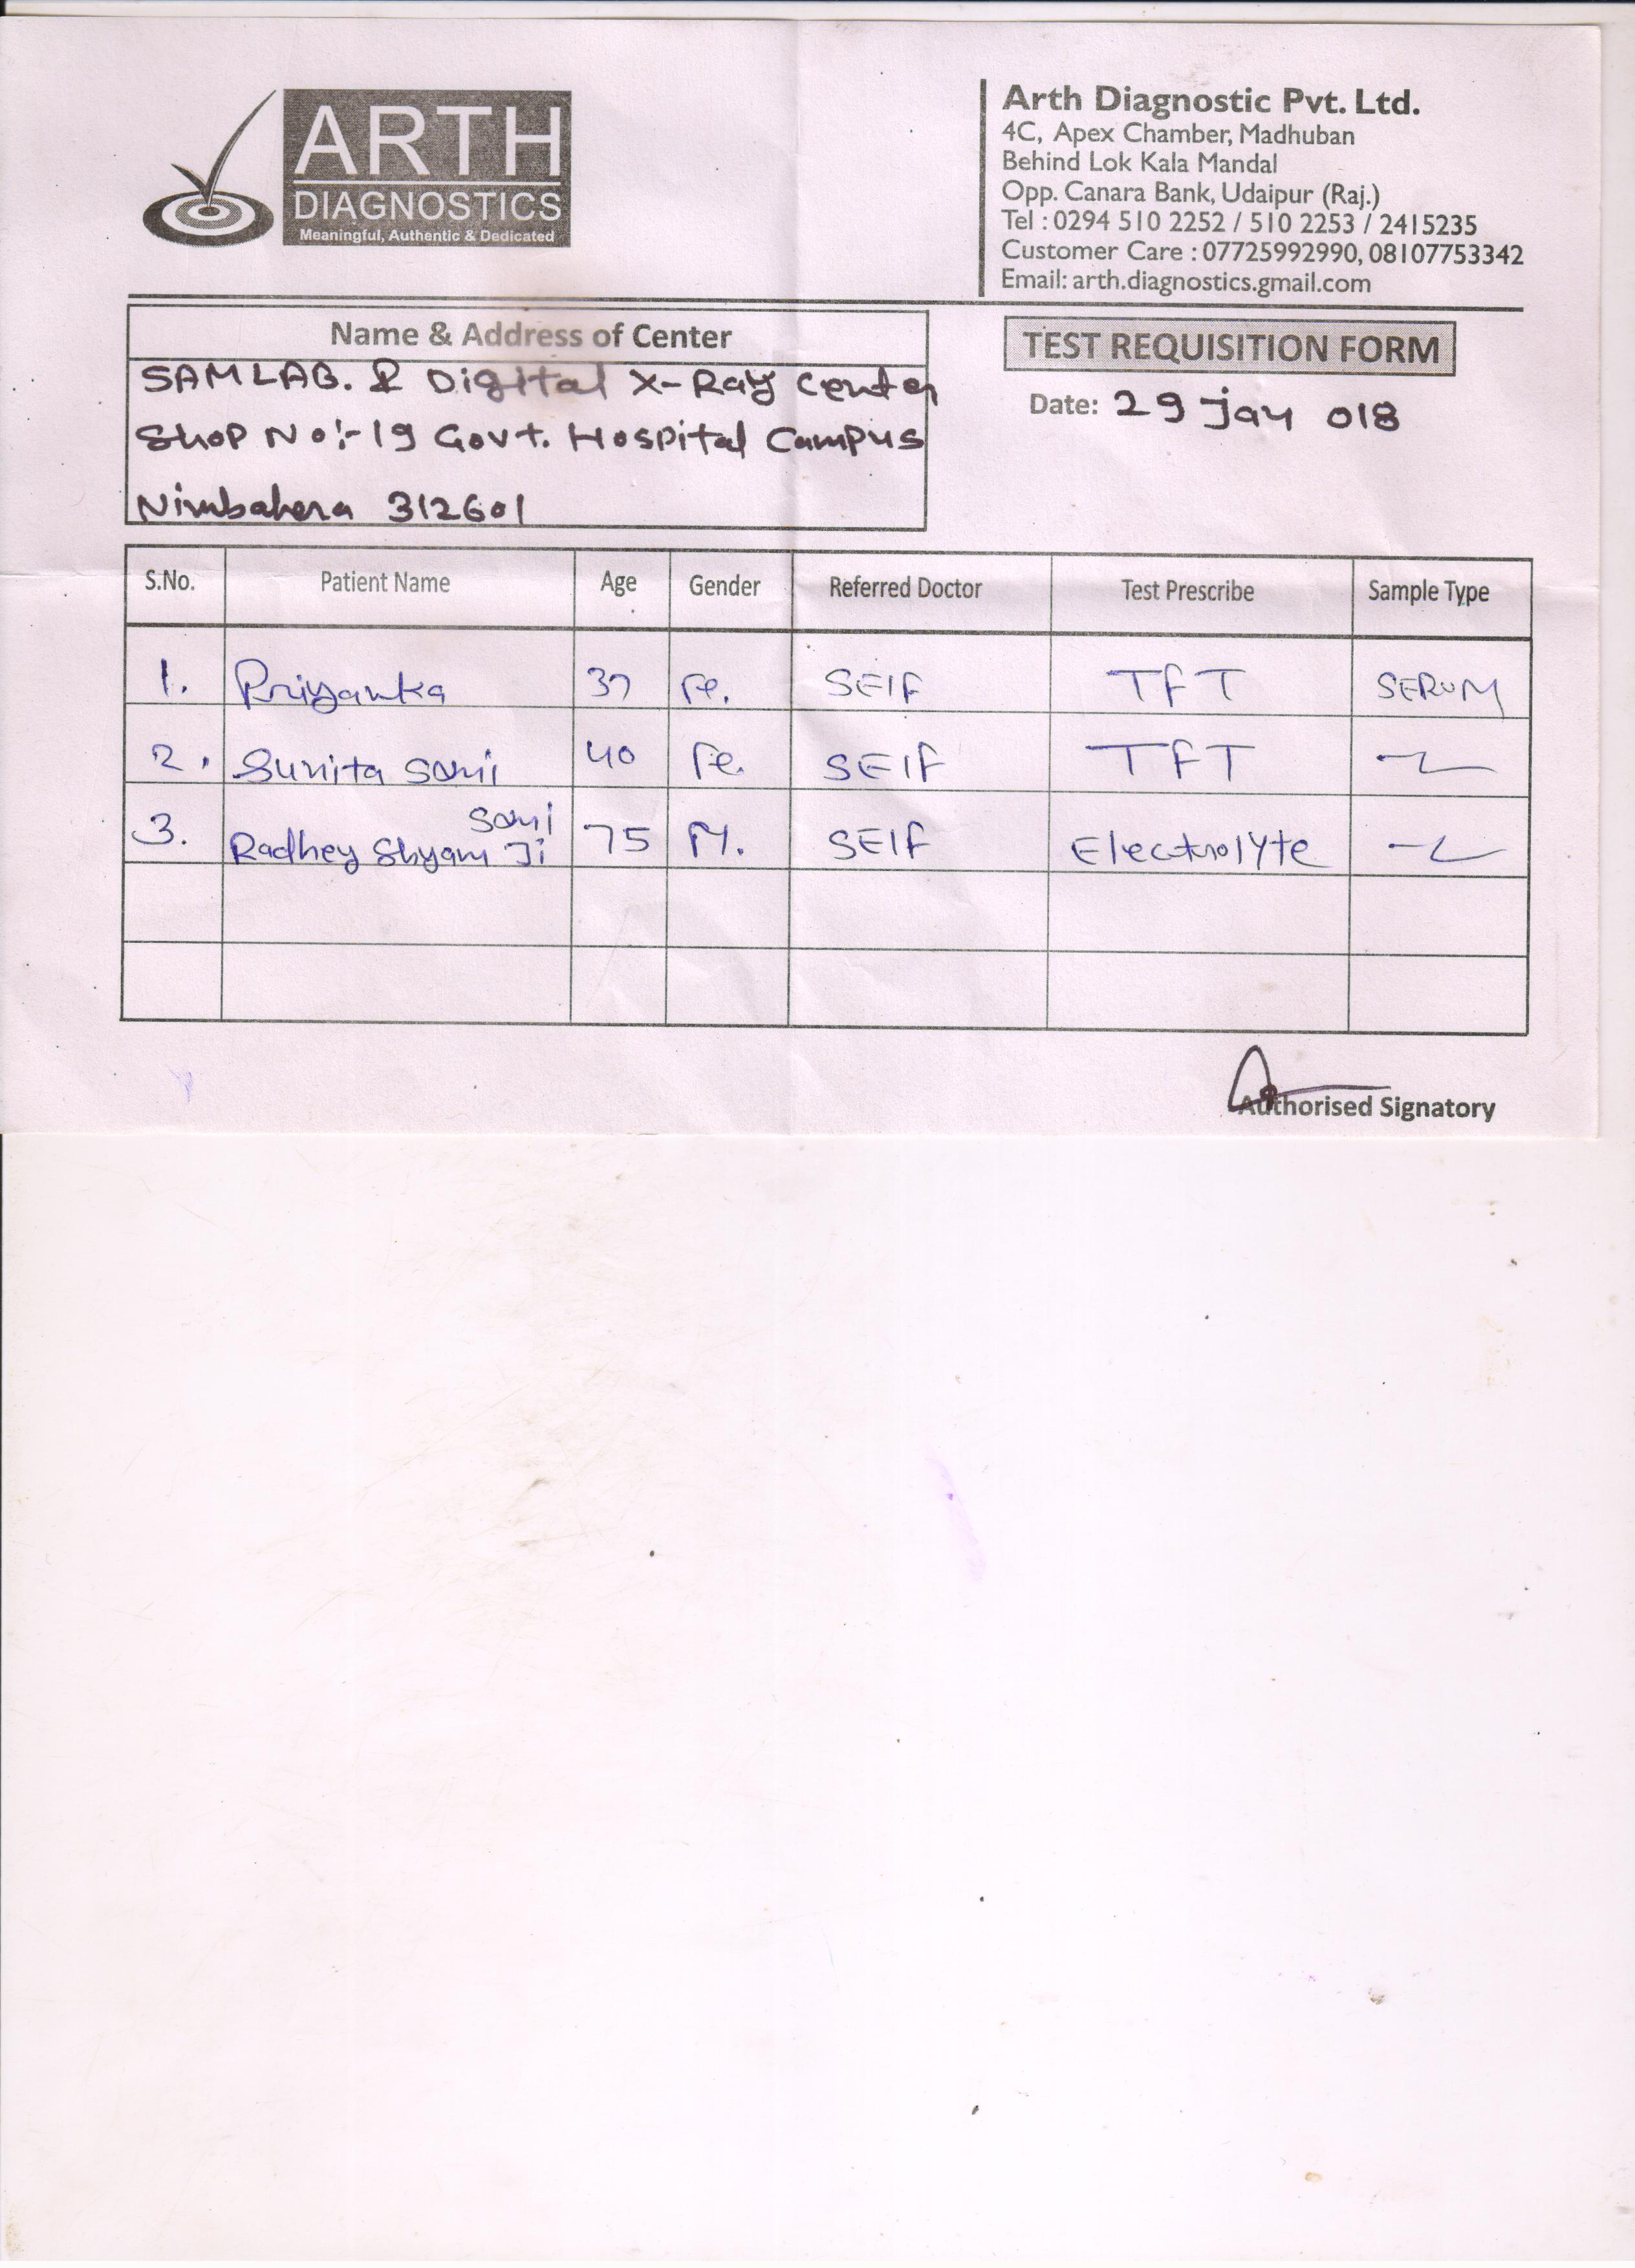 ARTH
DIAGNOSTICS
Meaningful, Authentic & Dedicated
Arth Diagnostic Pvt. Ltd.
4C, Apex Chamber, Madhuban
Behind Lok Kala Mandal
Opp. Canara Bank, Udaipur (Raj.)
Tel : 0294 510 2252 / 510 2253 / 2415235
Customer Care : 07725992990, 08107753342
Email: arth.diagnostics.gmail.com
Name & Address of Center
SAMLAB. & Digital X-Ray Center
Shop No:-19 Govt. Hospital Campus
Nimbahera 312601
TEST REQUISITION FORM
Date: 29 Jan 018
S.No. Patient Name Age Gender Referred Doctor Test Prescribe Sample Type
1. Priyanka 37 Fe. SElF TFT SERUM
2. Sunita Soni 40 Fe. SElF TFT
3. Radhey Shyam Ji Soni 75 M. SElF Electrolyte
Authorised Signatory